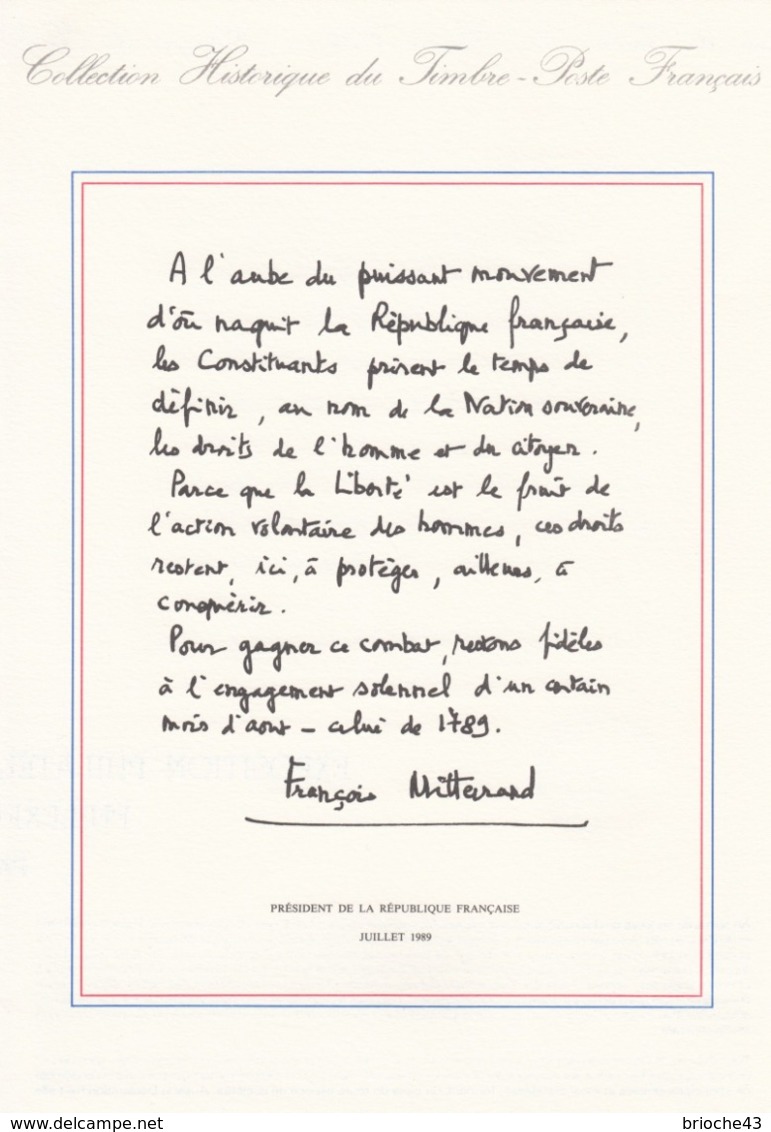 Collection Historique du Timbre-Poste Français
A l'aube du puissant mouvement
d'où naquit la République française,
les Constituants prirent le temps de
définir, au nom de la Nation souveraine,
les droits de l'homme et du citoyen.
Parce que la liberté est le fruit de
l'action volontaire des hommes, ces droits
restent, ici, à protéger, ailleurs, à
conquérir.
Pour gagner ce combat, restons fidèles
à l'engagement solennel d'un certain
mois d'août - celui de 1789.
François Mitterrand
PRÉSIDENT DE LA RÉPUBLIQUE FRANÇAISE
JUILLET 1989
www.delcampe.net
brioche43